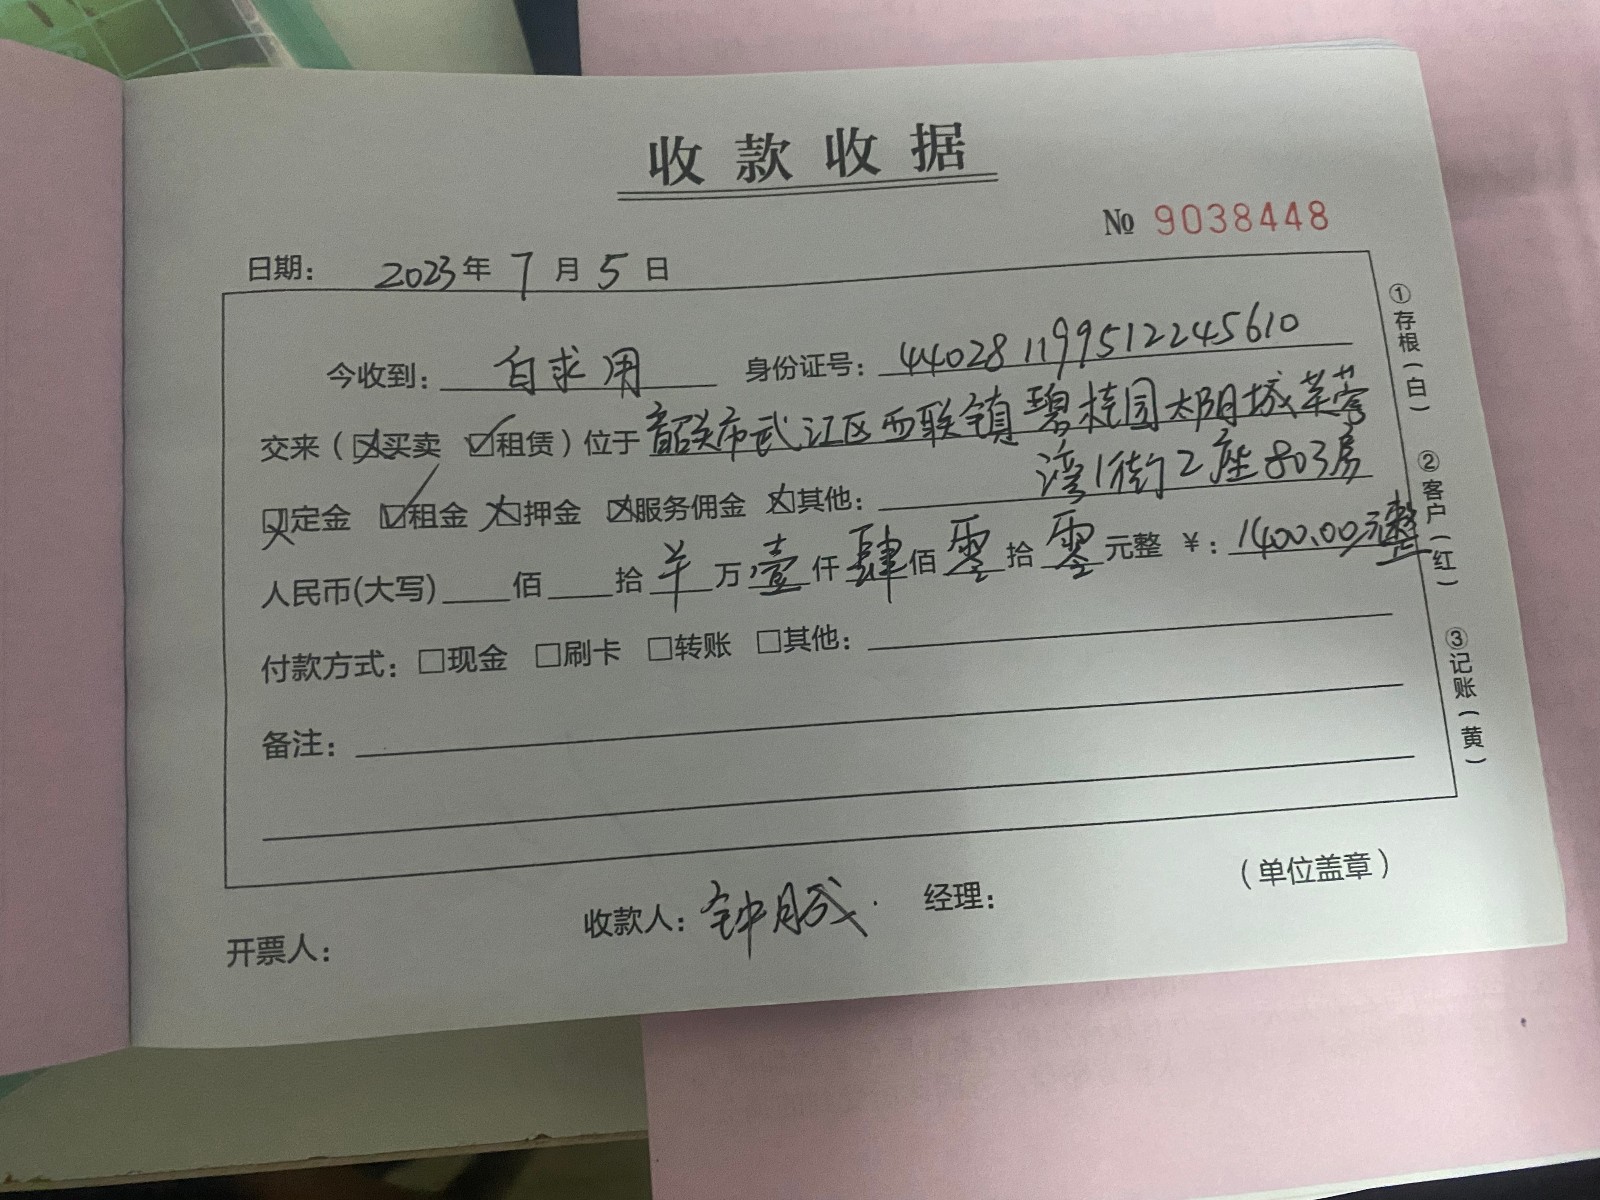 收款收据
№ 9038448
日期： 2023年7月5日
今收到： 自求用 身份证号： 440281199512245610
交来（☒买卖 ☑租赁）位于韶关市武江区西联镇碧桂园太阳城芙蓉
湾1街2座803房
☒定金 ☑租金 ☒押金 ☒服务佣金 ☒其他：
人民币(大写) 佰 拾 万壹仟肆佰零拾零元整 ¥： 1400.00元整
付款方式：□现金 □刷卡 □转账 □其他：
备注：
开票人： 收款人： 钟 经理： （单位盖章）
①存根(白)
②客户(红)
③记账(黄)